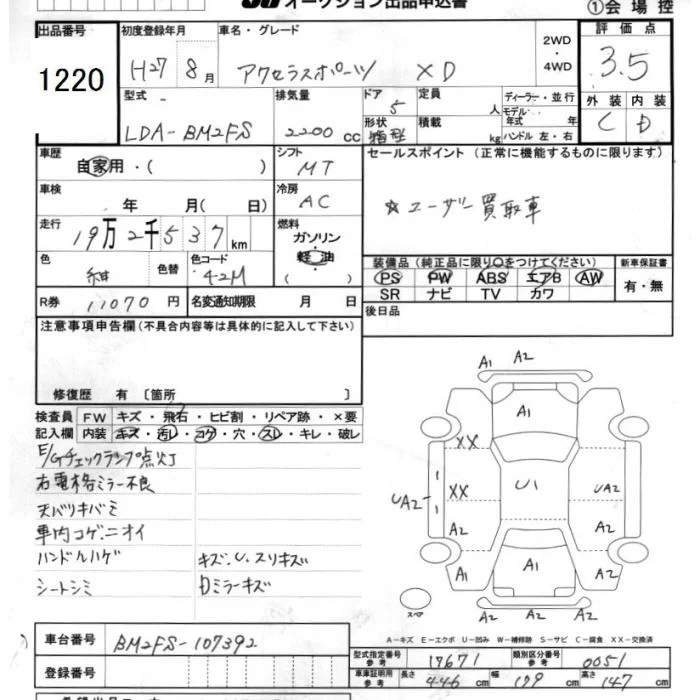 オークション出品申込書
①会場控
出品番号 1220
初度登録年月 H27 8月
車名・グレード アクセラスポーツ XD
2WD・4WD
評価点 3.5
外装 C 内装 D
型式 LDA-BM2FS
排気量 2200cc
ドア 5
形状 箱型
定員 人
積載 kg
ディーラー・並行
モデル年式 年式
ハンドル 左・右
車歴 自家用・( )
シフト MT
セールスポイント(正常に機能するものに限ります)
☆ユーザー買取車
車検 年 月( 日)
冷房 AC
走行 19万2千537km
燃料 ガソリン 軽油 ( )
色 紺 色替
色コード 42M
装備品(純正品に限り○をつけてください)
PS PW ABS エアB AW
SR ナビ TV カワ
新車保証書 有・無
R券 11070円
名変通知期限 月 日
後日品
注意事項申告欄(不具合内容等は具体的に記入して下さい)
修復歴 有〔箇所 〕
検査員記入欄
FW キズ・飛石・ヒビ割・リペア跡・×要
内装 キズ・汚レ・コゲ・穴・スレ・キレ・破レ
E/Gチェックランプ点灯
右電格ミラー不良
天バリキバミ
車内コゲ、ニオイ
ハンドルハゲ
キズ、U、スリキズ
シートシミ
Dミラーキズ
A1 A2
A1
XX
UA2 XX U1 UA2
A2 A2
A1 A2 A2
A2
スペア
A-キズ E-エクボ U-凹み W-補修跡 S-サビ C-腐食 XX-交換済
車台番号 BM2FS-107392
登録番号
型式指定番号 参考 17671
類別区分番号 参考 0051
車庫証明用 参考 長さ 446cm 幅 179cm 高さ 147cm